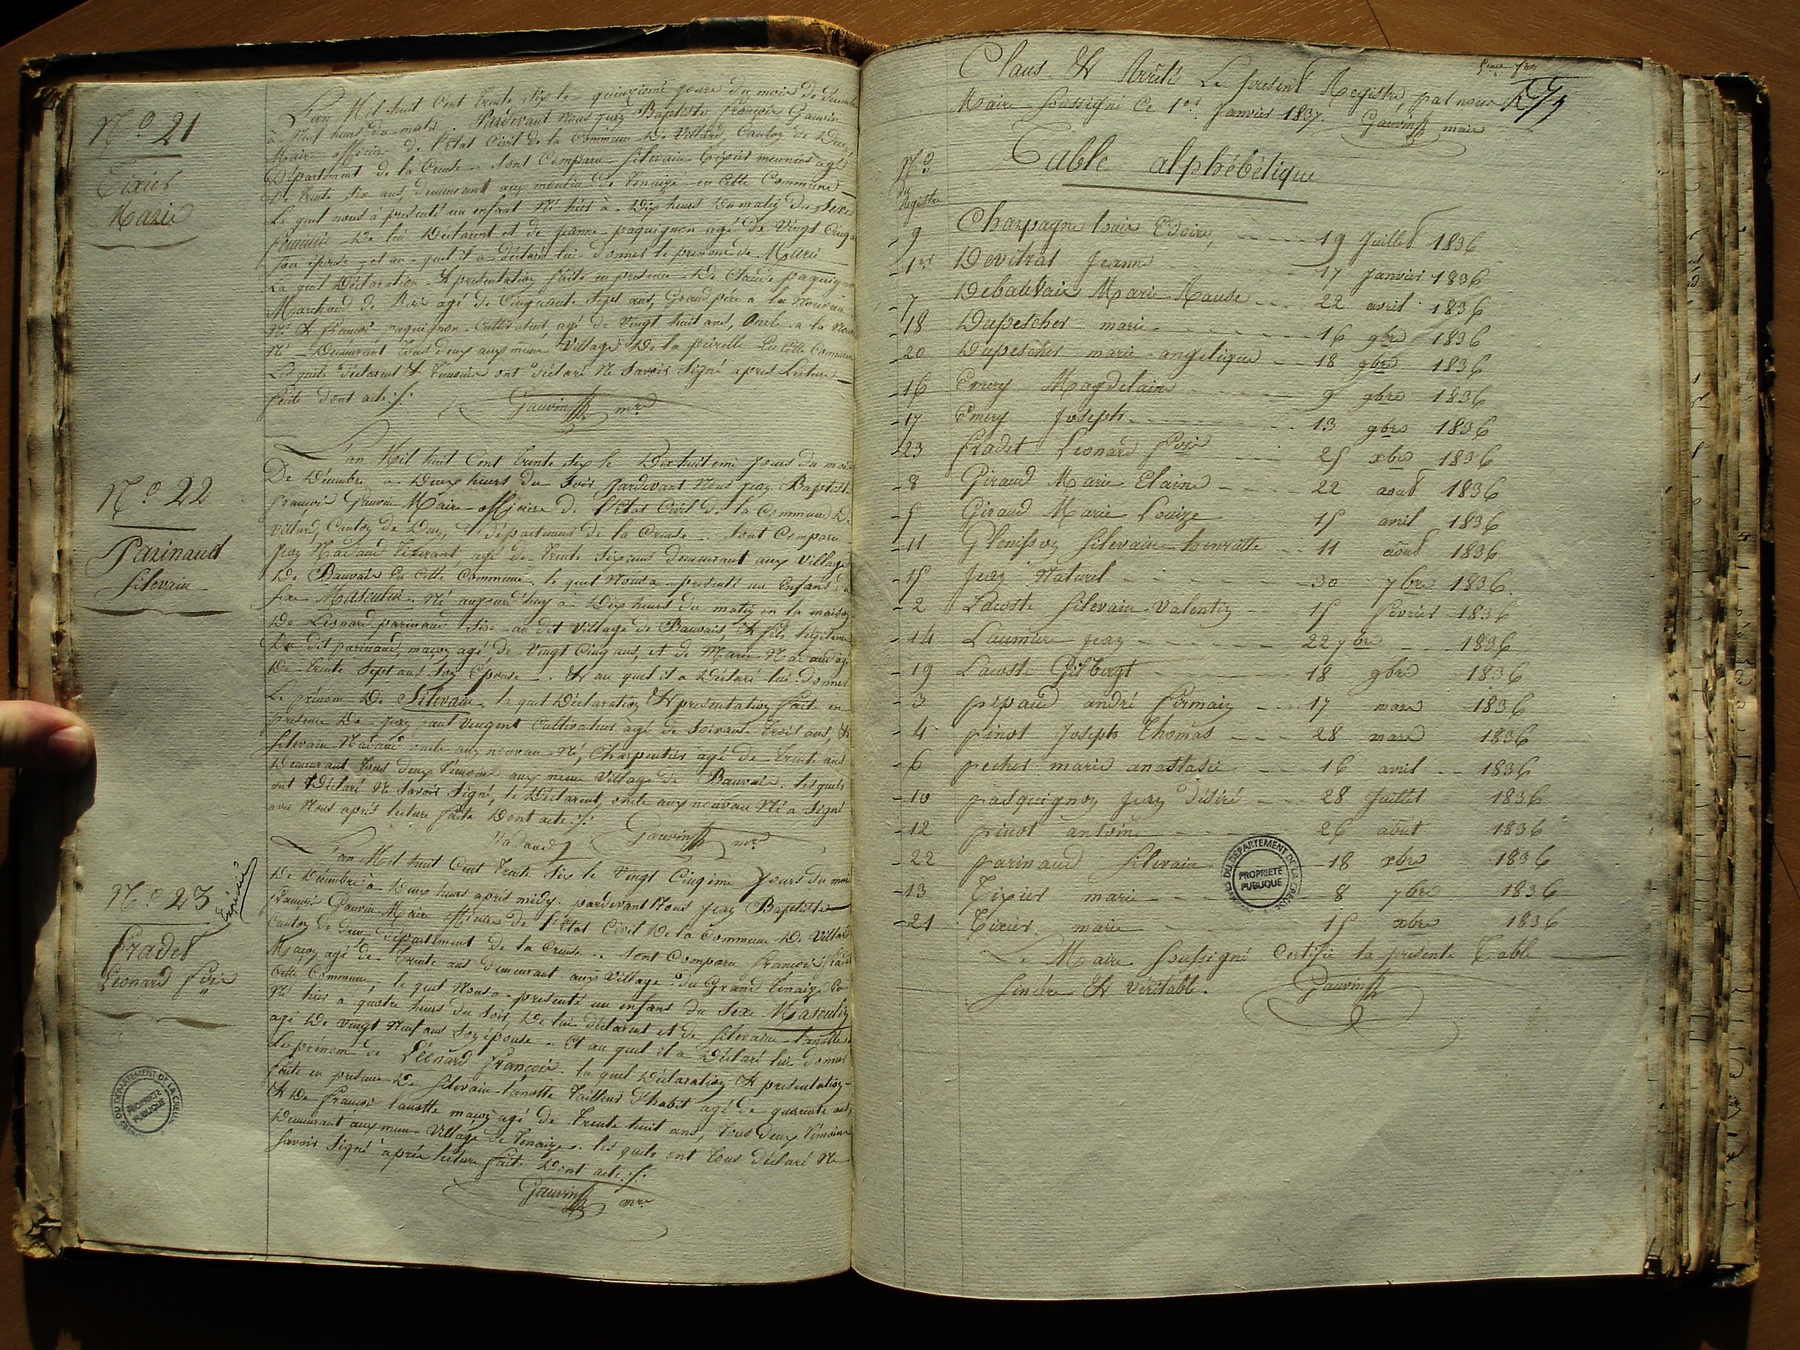 N.o 21
Tixier
Marie
L'an Mil huit Cent trente six le quinzieme jour du mois de Décembre
à neuf heures du matin. Pardevant Nous Jean Baptiste François Gauvin
Maire officier de l'Etat Civil de la Commune de Villard, Canton de Dun,
Département de la Creuse. Sont Comparu Silevain Tixier meunier agé
de trente six ans, demeurant aux moulin de Tenaize en Cette Commune
Le quel nous à présenté un enfant Né hier à Dix heures Du matin du Sexe
féminin De lui Déclarent et de jeanne paquignon agé de Vingt Cinq
son épouse, et au quel il a déclaré lui donner le prénom de Marie
La quel Déclaration & présentation faite en présence De Claude paquignon
Marchand de agé de Cinquante Sept ans, Grand père a la Nouveau
Né & francois paquignon Cultivateur, agé de Vingt huit ans, Oncle a la Nouv
Né Demeurant tous deux aux meme Village De la peirelle En Cette Commune
Les quels Déclarent & Temoins ont déclaré Ne Savoir Signé après Lecture
faite dont acte ./.
Gauvin mre
N.o 22
Parinaud
Silevain
L'an Mil huit Cent trente six le Dixhuitieme jours du mois
De Décembre a Deux heures du Soir pardevant Nous jean Baptiste
francois Gauvin Maire officier de l'Etat Civil de la Commune De
Villard, Canton de Dun, département de la Creuse. Sont Comparu
jean Nadaud agé de trente demeurant aux Village
De Bauvais En cette Commune, le quel Nous a présenté un Enfans du
sexe Masculin Né aujourd'huy à Dix heures du matin en la maison
De Léonard parinaud, Sise au dit Village de Bauvais, & fils légitime
Du dit parinaud, maçon, agé de Vingt Cinq ans, et de Marie Nadaud agé
De trente Sept ans Son Epouse. & au quel il a Déclaré lui Donner
Le prénom De Silevain. la quel Déclaration & présentation fait en
présence De jean paul Vingent Cultivateur agé de Soixante trois ans, &
Silevain Nadaud oncle aux nouveau Né, Charpentier agé de trente ans
Demeurant tous deux Témoins aux meme Village de Bauvais. lesquels
ont Déclaré Ne Savoir Signé, le Déclarent, oncle aux nouveau Né a Signé
avec Nous après lecture faite Dont acte ./.
Nadaud Gauvin mre
N.o 23
Fradet
Léonard fçois
L'an Mil huit Cent trente Six le Vingt Cinqieme jours du mois
De Décembre à Deux heures après midy. pardevant Nous jean Baptiste
francois Gauvin Maire officier de l'Etat Civil De la Commune De Villard
Canton de Dun, département de la Creuse. Sont Comparu francois fradet
Maçon, agé de trente ans demeurant aux Village du Grand Tenaize En
Cette Commune, le quel Nous a présenté un enfans du Sexe Masculin
Né hier a quatre heures du Soir, De lui déclarent et de Silevaine Lanotte
agé De Vingt Neuf ans Son épouse. Et au quel il a Déclaré lui donner
Le prénom de Léonard François. la quel Déclaration & présentation
faite en présence De Silevain Lanotte Tailleur d'habit agé de quarente ans
& De francois Lanotte maçon agé de trente huit ans, tous deux Témoins
Demeurant aux meme Village De Tenaize. les quels ont tous déclaré Ne
Savoir Signé après lecture fait. Dont acte ./.
Gauvin mre
PROPRIÉTÉ
PUBLIQUE
Claus & Arrêté Le present Registre par nous
Maire Soussigné Ce 1er Janvier 1837. Gauvin maire
Table alphébétique
N.o
du
Registre
9 Charpagne louis Edoire, 19 Juillet 1836
1er Devitrat Jeanne 17 Janvier 1836
7 Debauvais Marie Rause 22 avril 1836
18 Dupescher marie 16 9bre 1836
20 Dupescher marie angelique 18 9bre 1836
16 Emery Magdelaine 9 9bre 1836
17 Emery Joseph 13 9bre 1836
23 fradet Léonard fçois 25 xbre 1836
8 Giraud Marie Elaine 22 aout 1836
5 Giraud Marie Louize 15 avril 1836
11 Glenisson Silevain henriette 11 aout 1836
15 Jean Naturel 30 7bre 1836
2 Lacoste Silevain Valentin 15 février 1836
14 Laumure Jean 22 7bre 1836
19 Lacoste Gilbert 18 9bre 1836
3 pépaud andré Firmain 17 mars 1836
4 pinot Joseph Thomas 28 mars 1836
6 pecher marie anastasie 16 avril 1836
10 pasquignon Jean Désiré 28 Juillet 1836
12 pinot antoine 26 aout 1836
22 parinaud Silevain 18 xbre 1836
13 Tixier marie 8 7bre 1836
21 Tixier marie 15 xbre 1836
Le Maire Soussigné Certifie la présente Table
Sincère & Véritable. Gauvin
DU DÉPARTEMENT DE LA CREUSE
PROPRIÉTÉ
PUBLIQUE